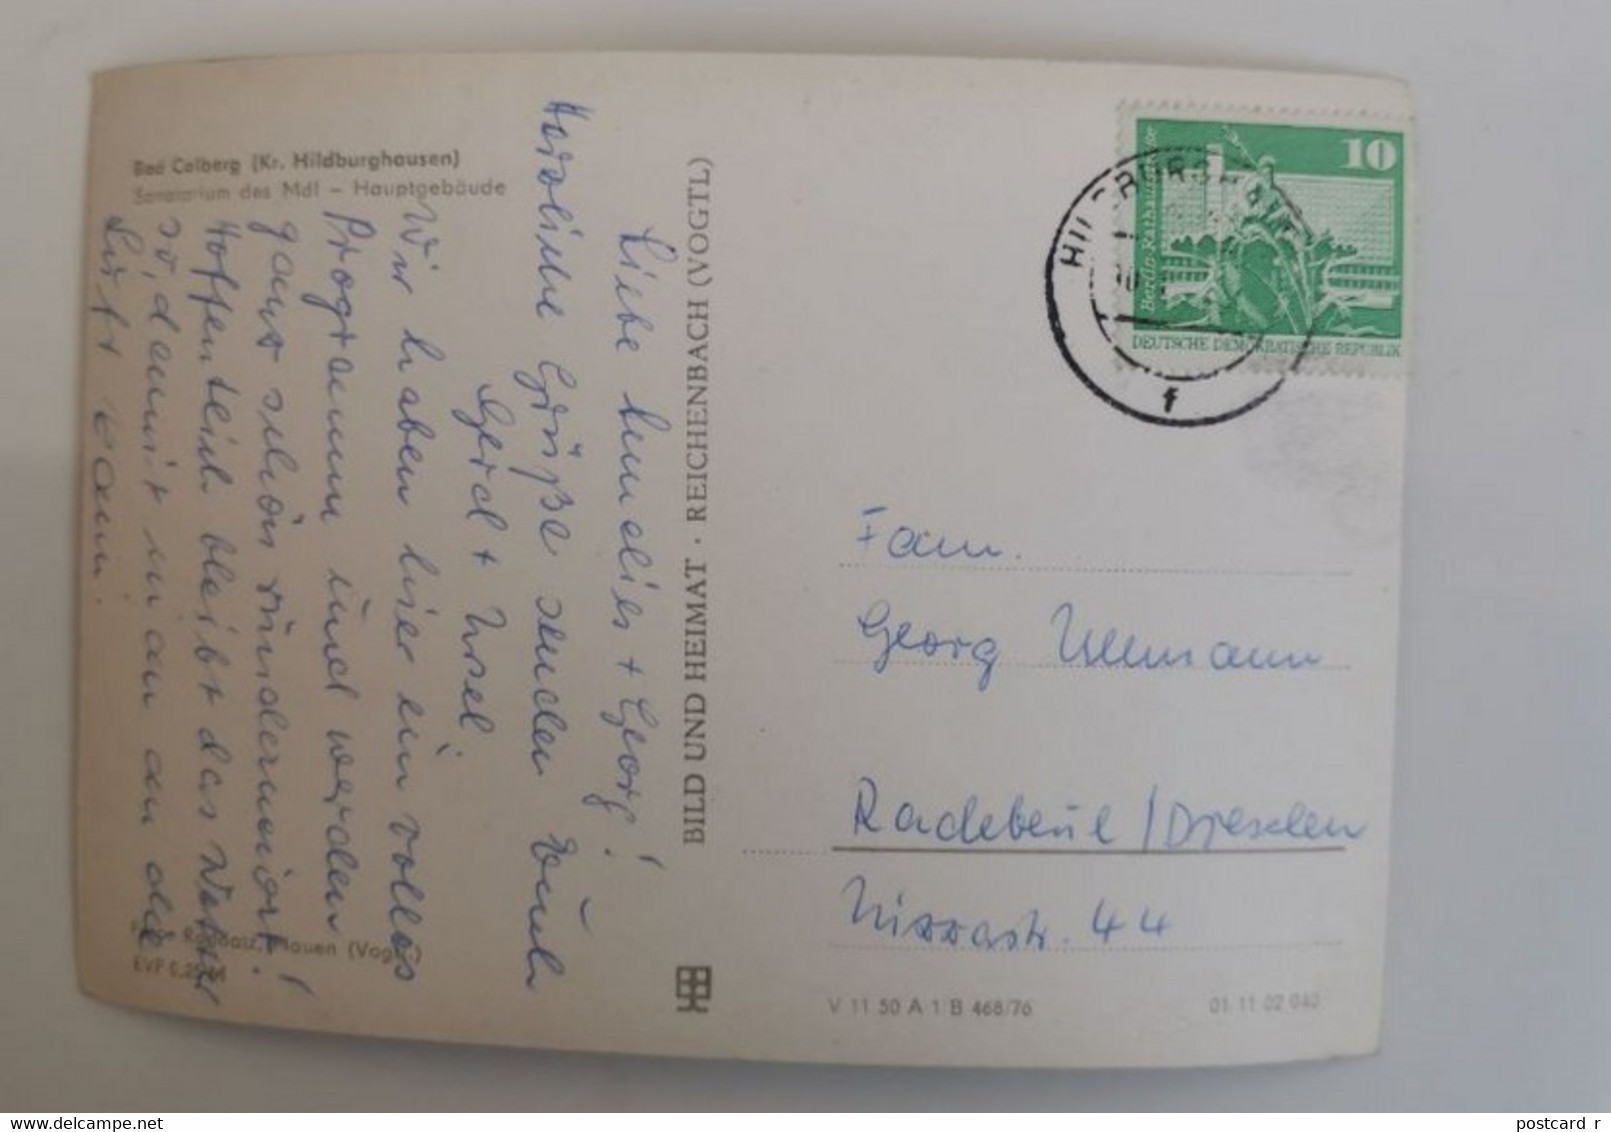 Bad Colberg (Kr. Hildburghausen)
Sanatorium des MdI – Hauptgebäude
Liebe Annelies + Georg!
Herzliche Grüße senden Euch
Gerd + Ursel.
Wir haben hier ein volles
Programm und werden
ganz schön rundermeiort!
Hoffentlich bleibt das Wetter
so, damit man an die
Luft kann.
Plauen (Vogtl)
EVP 0,25 M
BILD UND HEIMAT · REICHENBACH (VOGTL)
10
Berlin-Rathausstraße
DEUTSCHE DEMOKRATISCHE REPUBLIK
HILDBURGHAUSEN
f
Fam.
Georg Ullmann
Radebeul / Dresden
Nizzastr. 44
V 11 50 A 1 B 468/76
01 11 02 040
delcampe.net
postcard r